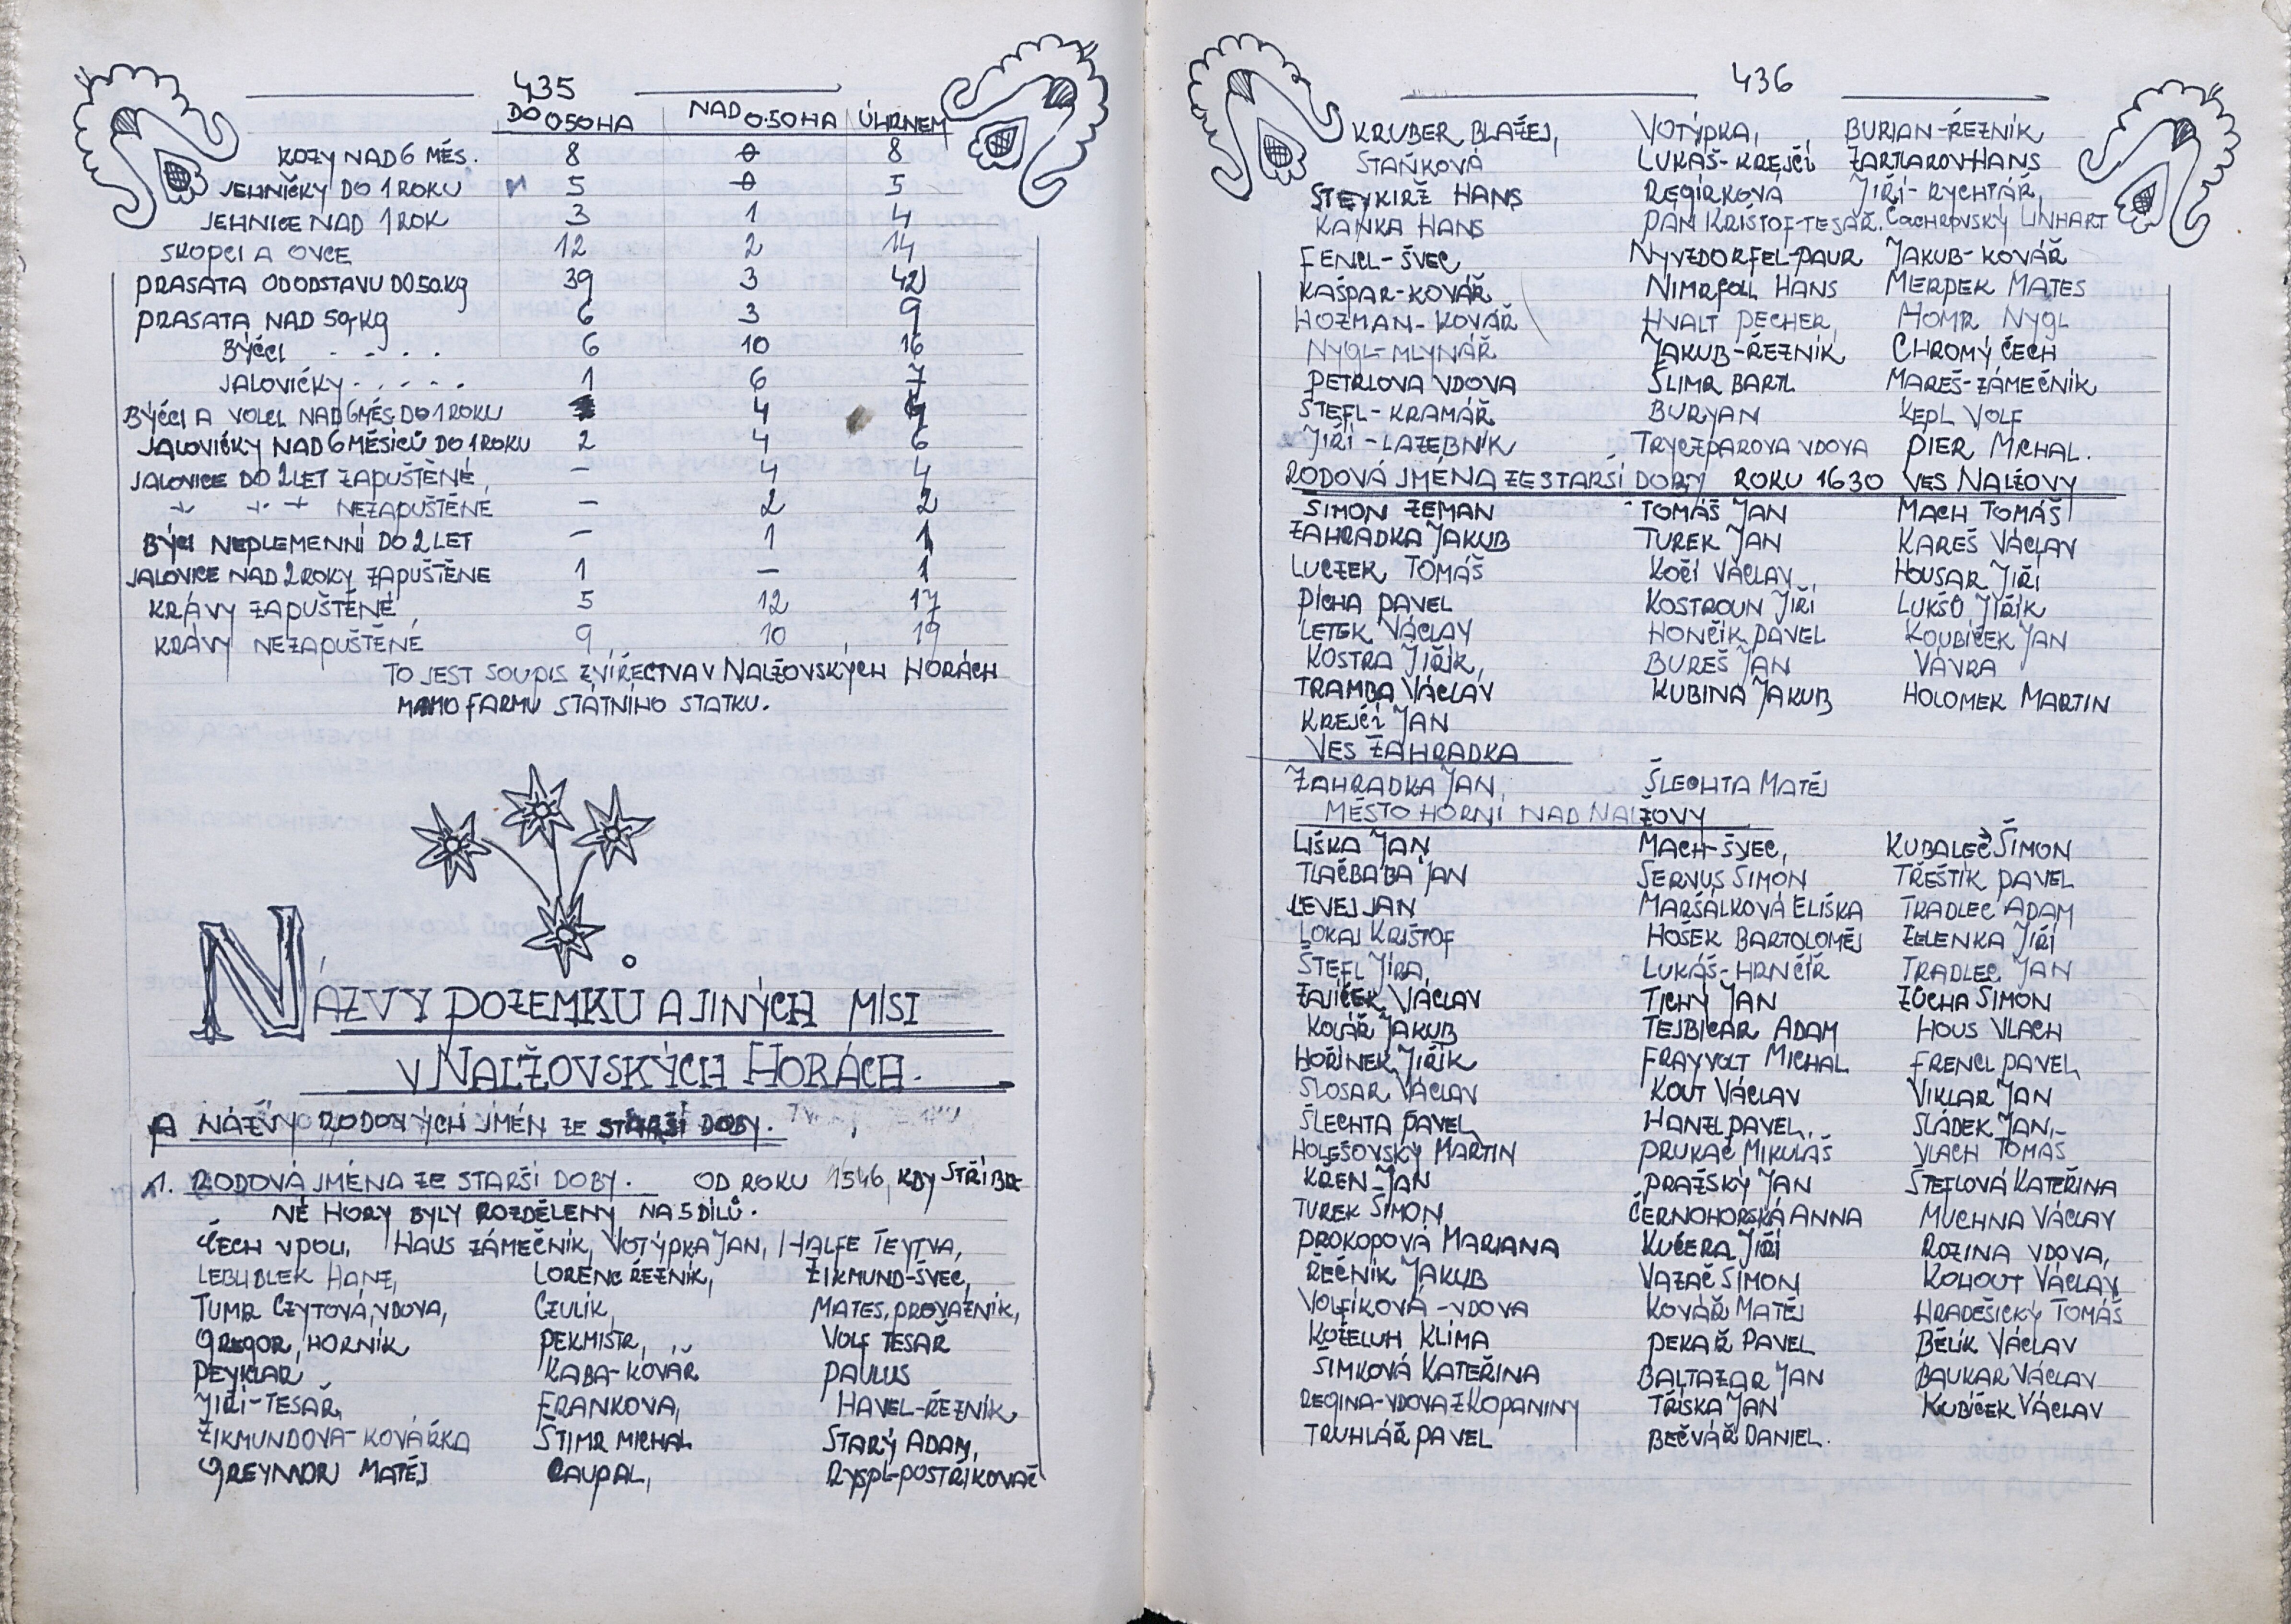 435
DO 050HA NAD 0.50HA ÚHRNEM
KOZY NAD 6 MĚS. 8 0 8
JEHNIČKY DO 1 ROKU 5 0 5
JEHNICE NAD 1 ROK 3 1 4
SKOPCI A OVCE 12 2 14
PRASATA OD ODSTAVU DO 50.KG 39 3 42
PRASATA NAD 50 KG 6 3 9
BÝČCI - - . . 6 10 16
JALOVIČKY - . . . . 1 6 7
BÝČCI A VOLCI NAD 6 MĚS. DO 1 ROKU 4
JALOVIČKY NAD 6 MĚSICŮ DO 1 ROKU 2 4 6
JALOVICE DO 2 LET ZAPUŠTĚNÉ, – 4 4
NEZAPUŠTĚNÉ – 2 2
BÝCI NEPLEMENNÍ DO 2 LET – 1 1
JALOVICE NAD 2 ROKY ZAPUŠTĚNE 1 – 1
KRÁVY ZAPUŠTĚNÉ 5 12 17
KRÁVY NEZAPUŠTĚNÉ 9 10 19
TO JEST SOUPIS ZVÍŘECTVA V NALŽOVSKÝCH HORÁCH
MIMO FARMU STÁTNÍHO STATKU.
NÁZVY POZEMKU A JINÝCH MÍST
V NALŽOVSKÝCH HORÁCH.
A NÁZVY RODOVÝCH JMÉN ZE STARŠÍ DOBY.
1. RODOVÁ JMÉNA ZE STARŠÍ DOBY. OD ROKU 1546, KDY STŘÍBR
NÉ HORY BYLY ROZDĚLENY NA 5 DÍLŮ.
ČECH V POLI, HAUS ZÁMEČNÍK, VOTÝPKA JAN, HALFE TEYTVA,
LEBUBLEK HANZ, LORENC ŘEZNÍK, ŽIKMUND-ŠVEC,
TUMR CZYTOVÁ, VDOVA, CZULÍK, MATES, PROVAZNÍK,
GREGOR, HORNÍK PEKMISTR, VOLF TESAŘ
PEYKLAR KABA-KOVÁŘ PAULUS
JIŘÍ-TESAŘ, FRANKOVA, HAVEL-ŘEZNÍK
ŽIKMUNDOVA-KOVÁŘKA ŠTIMR MICHAL STARÝ ADAM,
GREYNDR MATĚJ RAUPAL, RYSPL-POSTŘIKOVAČ
436
KRUBER BLAŽEJ, VOTÝPKA, BURIAN-ŘEZNÍK
STAŇKOVÁ LUKÁŠ-KREJČÍ ZARTLAROV HANS
ŠTEYKIRŽ HANS REGÍRKOVÁ JIŘÍ-RYCHTÁŘ,
KAŇKA HANS PAN KRISTOF-TESAŘ. ČACHROVSKÝ LINHART
FENCL-ŠVEC NYVZDORFEL-PAUR JAKUB-KOVÁŘ
KAŠPAR-KOVÁŘ NIMRFOLL HANS MERPEK MATES
HOZMAN-KOVÁŘ HVALT PECHER, HOMR NYGL
NYGL-MLYNÁŘ JAKUB-ŘEZNÍK CHROMÝ ČECH
PETRLOVA VDOVA ŠLIMR BARTL MAREŠ-ZÁMEČNÍK
ŠTEFL-KRAMÁŘ BURYAN KEPL VOLF
JIŘÍ-LAZEBNÍK TRYCZPAROVA VDOVA PIER MICHAL.
RODOVÁ JMÉNA ZE STARŠÍ DOBY ROKU 1630 VES NALŽOVY
ŠIMON ZEMAN TOMÁŠ JAN MACH TOMÁŠ
ZAHRADKA JAKUB TUREK JAN KAREŠ VÁCLAV
LUCZEK TOMÁŠ KOČÍ VÁCLAV HOUSAR JIŘÍ
PÍCHA PAVEL KOSTROUN JIŘÍ LUKŠŮ JIŘÍK
LETEK VÁCLAV HONČÍK PAVEL KOUBÍČEK JAN
KOSTRA JIŘÍK, BUREŠ JAN VÁVRA
TRAMBA VÁCLAV KUBINA JAKUB HOLOMEK MARTIN
KREJČÍ JAN
VES ZAHRADKA
ZAHRADKA JAN, ŠLECHTA MATĚJ
MĚSTO HORNÍ NAD NALŽOVY
LIŠKA JAN MACH-ŠVEC, KUBALEČ ŠIMON
TLAČBABA JAN SERVUS ŠIMON TŘEŠTÍK PAVEL
LEVEJ JAN MARŠÁLKOVÁ ELIŠKA TRADLEC ADAM
LOKAJ KRIŠTOF HOŠEK BARTOLOMĚJ ZELENKA JIŘÍ
ŠTEFL JÍRA, LUKÁŠ-HRNČÍŘ TRADLEC JAN
ZAJÍČEK VÁCLAV TICHÝ JAN ZŮCHA ŠIMON
KOLÁŘ JAKUB TEJBICAR ADAM HOUS VLACH
HOŘÍNEK JIŘÍK FRAYVOLT MICHAL FRENCL PAVEL
SLOSAR VÁCLAV KOUT VÁCLAV VIKLAR JAN
ŠLECHTA PAVEL HANZL PAVEL, SLÁDEK JAN,
HOLEŠOVSKÝ MARTIN PRUKAČ MIKULÁŠ VLACH TOMÁŠ
KŘEN-JAN PRAŽSKÝ JAN ŠTEFLOVÁ KATEŘINA
TUREK ŠIMON ČERNOHORSKÁ ANNA MUCHNA VÁCLAV
PROKOPOVÁ MARIANA KUČERA JIŘÍ ROZINA VDOVA,
ŘEČNÍK JAKUB VAZAČ ŠIMON KOHOUT VÁCLAV
VOLFÍKOVÁ-VDOVA KOVÁŘ MATĚJ HRADEŠICKÝ TOMÁŠ
KOŽELUH KLÍMA PEKAŘ PAVEL BĚLÍK VÁCLAV
ŠIMKOVÁ KATEŘINA BALTAZAR JAN BAUKAR VÁCLAV
REGINA-VDOVA Z KOPANINY TŘÍSKA JAN KUBÍČEK VÁCLAV
TRUHLÁŘ PAVEL BEČVÁŘ DANIEL.